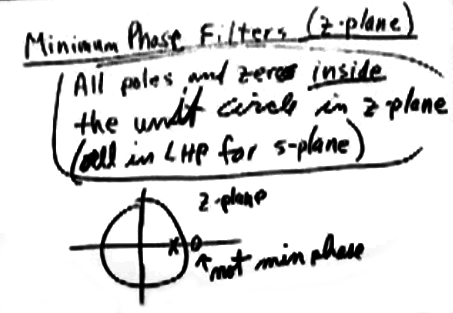 Minimum Phase Filters (z-plane)
All poles and zeros inside
the unit circle in z-plane
(all in LHP for s-plane)
z-plane
not min phase